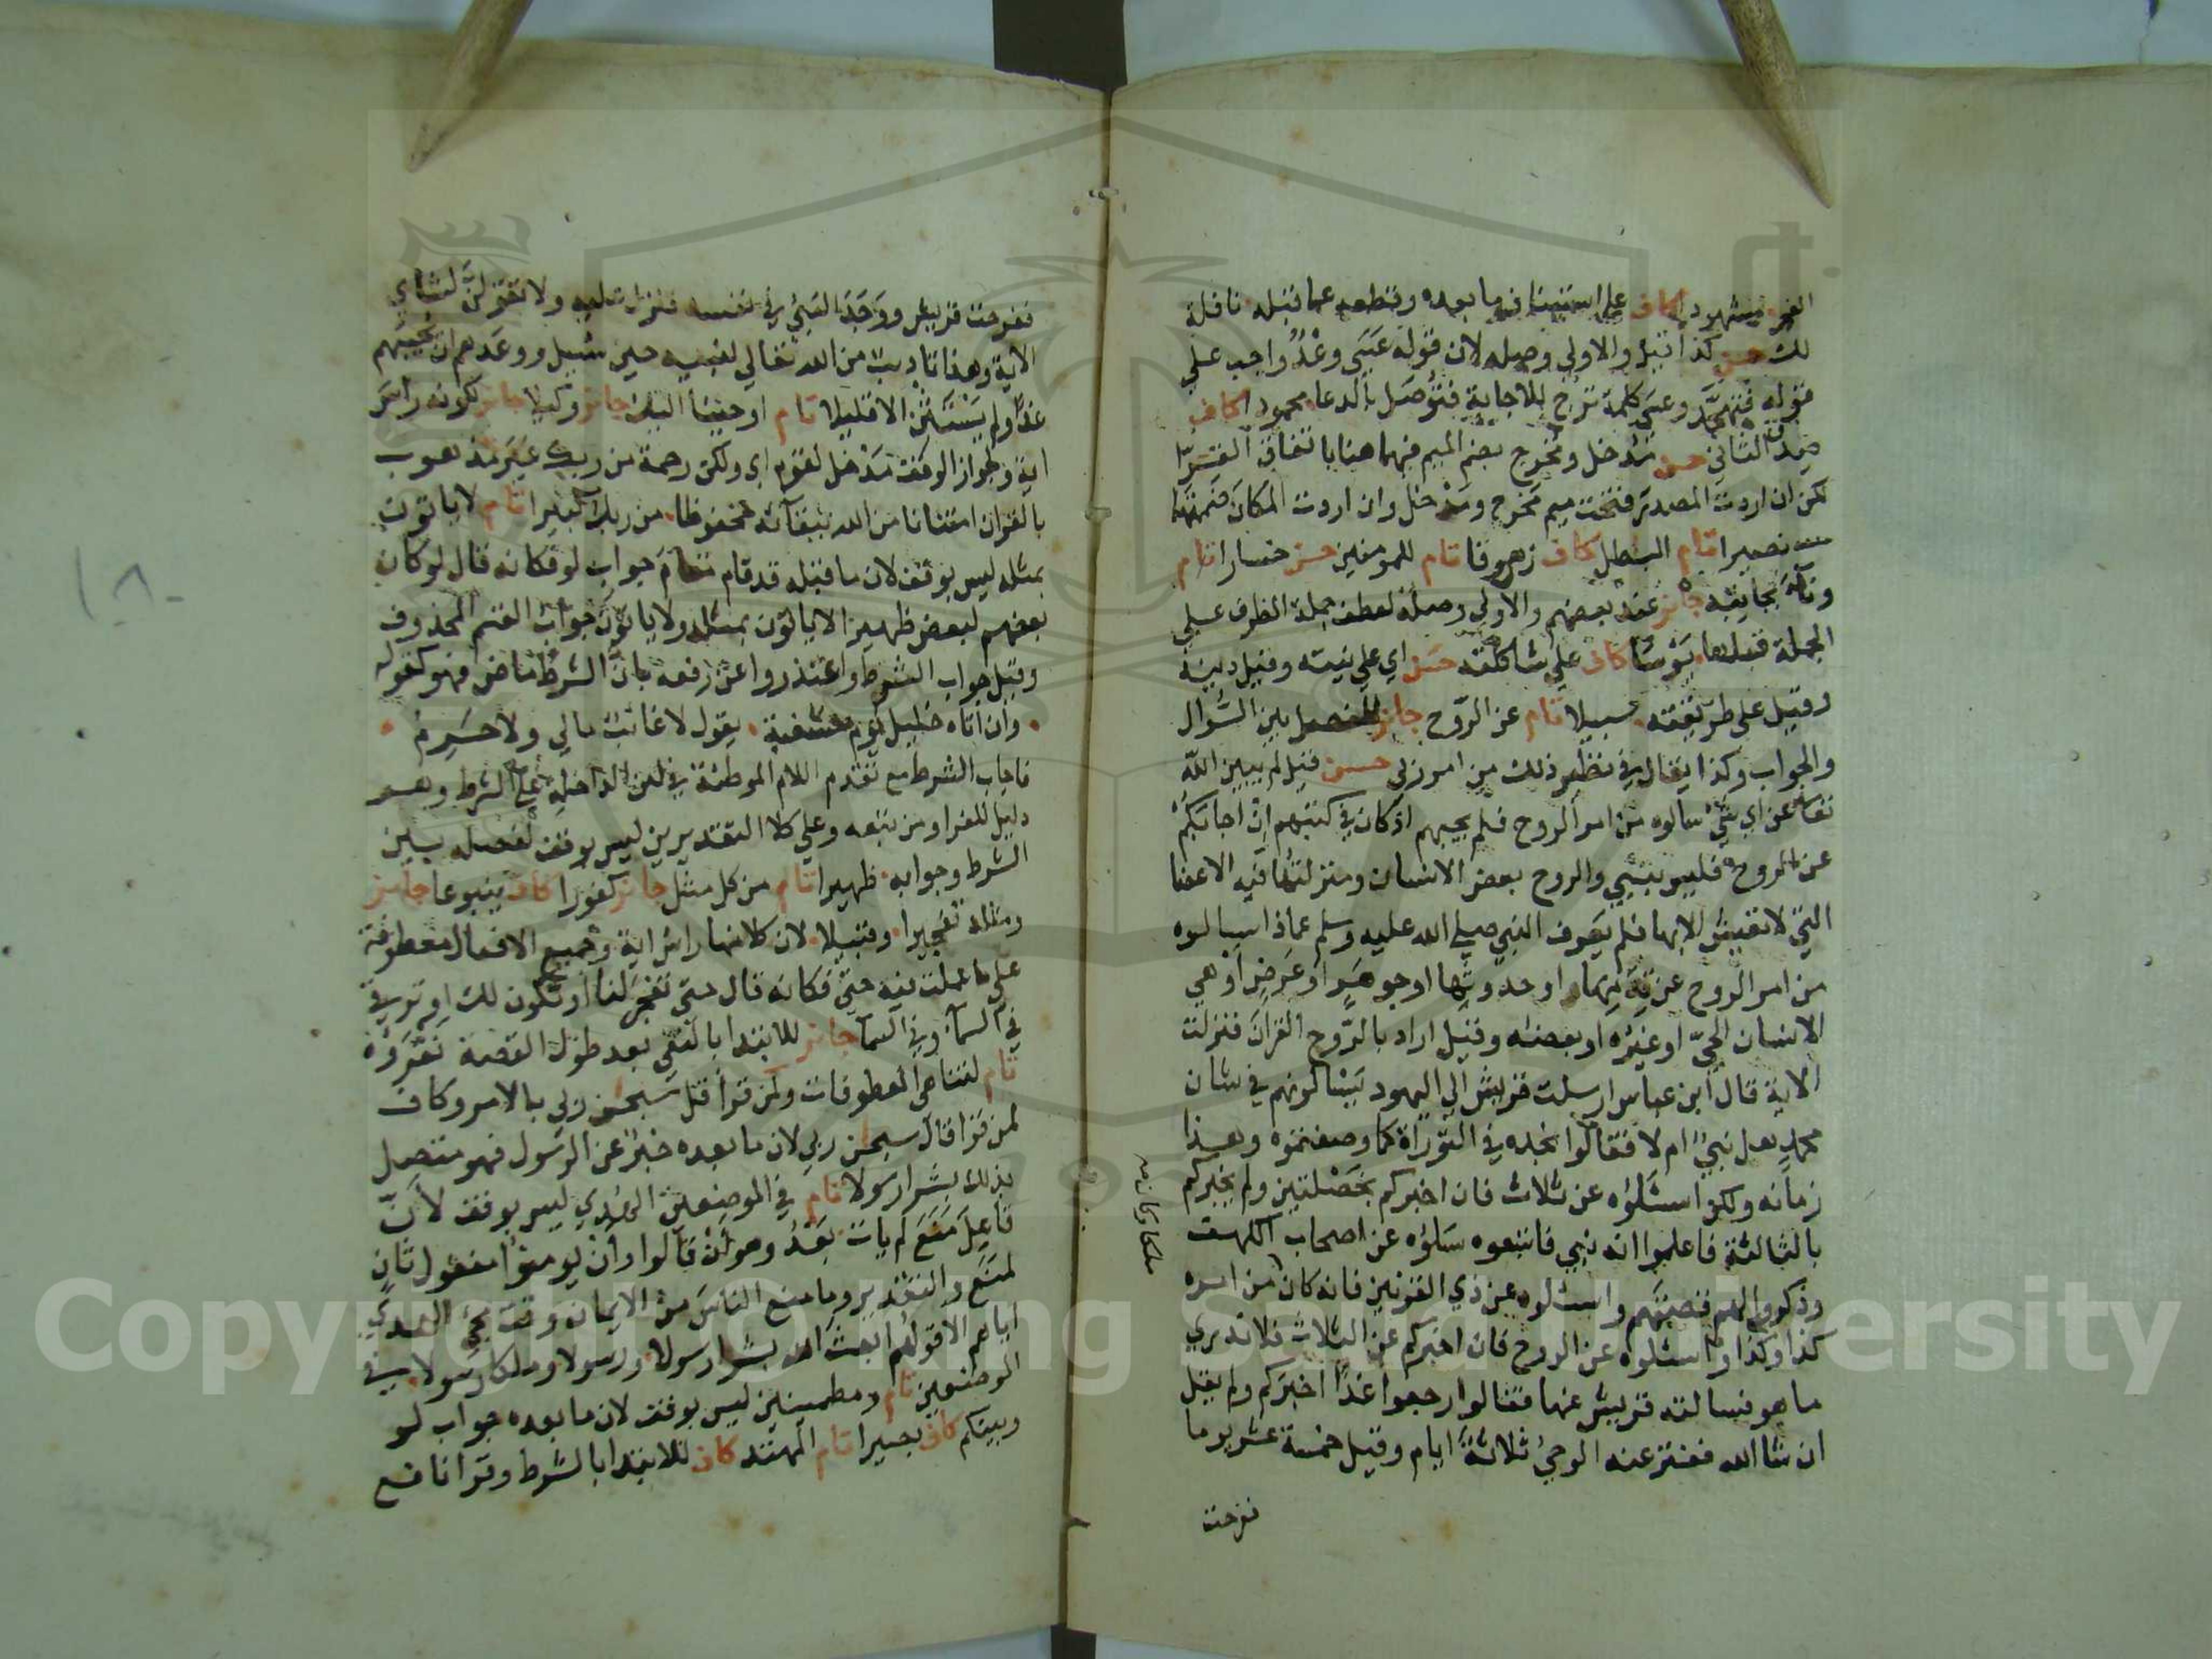 الفجر مشهودا كاف على استيناف ما بعده وقطعه عما قبله نافلة
لك حسن كذا قيل والاولى وصله لان قوله عَسَى وعْدٌ واجب على
قوله فتهجَّد وعسى كلمة ترجٍ للاجابة فتُوصَل بالدعاء محمودا كاف
صدق الثاني حسن مُدخل ومُخرج بضم الميم فيهما هنا باتفاق القرّا
لكن ان اردت المصدر فتحت ميم مَخرج ومَدخل وان اردت المكان ضممتهما
نصيرا تام البٰطل كاف زهوقا تام للمومنين حسن خسارا تام
ونآ بجانبه جائز عند بعضهم والاولى وصله لعطف جملة الظرف على
الجملة قبلها يَؤسًا كاف على شاكلته حسن اي على نيته وقيل دينه
وقيل على طريقته سبيلا تام عن الرّوح جائز للفصل بين السُّوال
والجواب وكذا يقال في نظير ذلك من امر ربي حسن قيل لم يبين الله
تعالى عن اي شي سالوه من امر الروح فلم يجبهم اذ كان في كتبهم ان اجابكم
عن الروح فليس بنبي والروح بعض الانسان ومنزلتها فيه الاعضا
التي لا تعيش الا بها فلم يعرف النبي صلى الله عليه وسلم عماذا سالوه
من امر الروح عن قِدَمِها او حدوثها او جوهَرٍ او عَرَضٍ او هي
الانسان الحيّ او غيره او بعضه وقيل اراد بالرّوح القران فنزلت
الاية قال ابن عباس ارسلت قريش الى اليهود يَسْالونهم في شان
محمد هل نبيٌّ ام لا فقالوا نجده في التوراة كما وصفتموه وهذا
زمانه ولكن اسئلوه عن ثلاث فان اخبركم بخَصْلتين ولم يخبركم
بالثالثة فاعلموا انه نبي فاتبعوه سَلوُه عن اصحاب الكهف
وذكروا لهم قصتهم واسئلوه عن ذي القرنين فانه كان من امره
كذا وكذا واسئلوه عن الروح فان اخبركم عن الثلاث فلا ندري
ما هو فسالته قريش عنها فقالوا رجعوا غدًا اخبركم ولم يقل
ان شا الله ففتر عنه الوحيُ ثلاثةً ايام وقيل خمسة عشر يوما
ففرحت
ملكا وكان
ففرحت قريش ووَجَدَ النبيُّ في نفسه فنزلت عليه ولا تقولنَّ لشاي
الاية وهذا تاديبٌ من الله تعالى لنبيه حين سُئِل ووعَدهم ان يجيبهم
غدًا ولم يَسْتَثْنِ الا قليلا تام اوحينا اليك جائز وكيلا جائز لكونه راسَ
اية ولجواز الوقف مَدْخل لقوم اي ولكن رحمة من ربك غير مذهوب
بالقران امتنانا من الله ببقآئه محفوظا من ربك كبيرا تام لا ياتون
بمثله ليس بوقف لان ما قبله قد قام مقام جواب لو فكانه قال لو كان
بعضهم لبعض ظهيرا لا ياتون بمثله ولا ياتونَ جواب القسم المحذوف
وقيل جواب الشرط واعتذروا عن رفعه بانّ الشرط ماض فهو كقوله
وان اتاه خليلٌ يوم مسغبة يقول لا غائب مالي ولا حَرِمُ
فاجاب الشرط مع تقدم اللام الموطئة في لئن الداخلة على الشرط وهو
دليل للفرا ومن تبعه وعلى كلا التقديرين ليس بوقف لفصله بين
الشرط وجوابه ظهيرا تام من كل مثل جائز كفورا كاف ينبوعا جائز
ومثله تفجيرا وقبيلا لان كلا منها راس اية وجميع الافعال معطوفة
على ما عملت فيه حتى فكانه قال حتى تفجر لنا او تكون لك او ترقى
في السمآء وفي السما جائز للابتدا بالنفي بعد طول القصة نقرَؤه
تام لتناهي المعطوفات ولمن قرأ قل سبحٰن ربي بالامر وكاف
لمن قرا قال سبحٰن ربي لان ما بعده خبرٌ عن الرسول فهو متصل
بذلك بشرا رسولا تام في الموضعين الهُدى ليس بوقف لانّ
فاعِلَ مَنَعَ لم يات بَعْدُ وهو أَنْ قالوا وأن يومنوا مفعول ثان
لمنَع والتقدير وما منع الناسَ من الايمان وقت مجئ الهدى
اياهم الا قولُهم ابعث الله بشرا رسولا ورسولا وملكا رسولا في
الموضعين تام ومطمينين ليس بوقف لان ما بعده جواب لو
وبينكم كاف بصيرا تام المهتد كاف للابتدا بالشرط وقرا نافع
١٨٠
Copyright © King Saud University